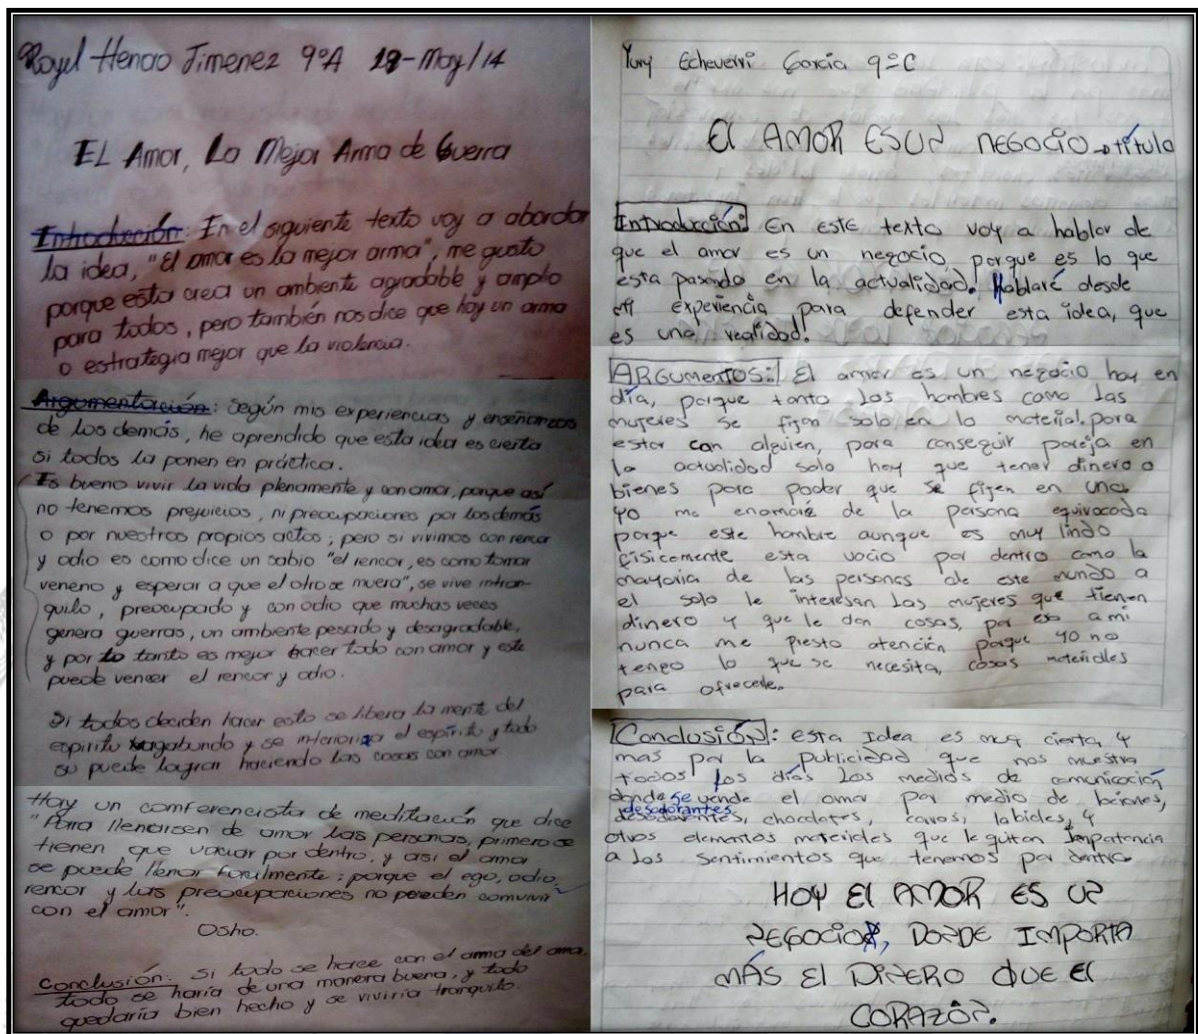 Royel Henao Jimenez 9°A 19-May/14
EL Amor, La Mejor Arma de Guerra
Introducción: In el siguiente texto voy a abordar
la idea, "El amor es la mejor arma", me gusto
porque esta crea un ambiente agradable y amplio
para todos, pero también nos dice que hay un arma
o estrategia mejor que la violencia.
Argumentación: Según mis experiencias y enseñanzas
de los demás, he aprendido que esta idea es cierta
si todos la ponen en práctica.
Es bueno vivir la vida plenamente y con amor, porque así
no tenemos prejuicios, ni preocupaciones por los demás
o por nuestros propios actos; pero si vivimos con rencor
y odio es como dice un sabio "el rencor, es como tomar
veneno y esperar a que el otro se muera", se vive intran-
quilo, preocupado y con odio que muchas veces
genera guerras, un ambiente pesado y desagradable,
y por lo tanto es mejor hacer todo con amor y este
puede vencer el rencor y odio.
Si todos deciden hacer esto se libera la mente del
espiritu vagabundo y se interioriza el espíritu y todo
su puede lograr haciendo las cosas con amor.
Hay un comferencista de meditación que dice
"Para llenarsen de amor las personas, primero se
tienen que vaciar por dentro, y asi el amor
se puede llenar facilmente; porque el ego, odio,
rencor y las preocupaciones no pueden comvivir
con el amor".
Osho.
Conclusión: Si todo se hace con el arma del amor,
todo se haría de una manera buena, y todo
quedaría bien hecho y se viviría tranquilo.
Yury Echeverri Garcia 9°C
El AMOR ES UN NEGOCIO → título
Introducción: En este texto voy a hablar de
que el amor es un negocio porque es lo que
esta pasando en la actualidad. Hablaré desde
mi experiencia para defender esta idea, que
es una realidad.
ARGUMENTOS: El amor es un negocio hoy en
día, porque tanto los hombres como las
mujeres se fijan solo en lo material para
estar con alguien, para conseguir pareja en
la actualidad solo hay que tener dinero o
bienes para poder que se fijen en una.
Yo me enamore de la persona equivocada
porque este hombre aunque es muy lindo
fisicamente esta vacio por dentro como la
mayoria de las personas de este mundo a
el solo le interesan las mujeres que tienen
dinero y que le den cosas, por eso a mi
nunca me presto atención porque yo no
tengo lo que se necesita, cosas materiales
para ofrecele.
Conclusión: esta Idea es muy cierta, y
mas por la publicidad que nos muestra
todos los días los medios de comunicación
donde se vende el amor por medio de
desodorantes, chocolates, carros, labiales, y
otros elementos materiales que le quitan Importancia
a los sentimientos que tenemos por dentro.
HOY El AMOR ES UN
NEGOCIO, DONDE IMPORTA
MÁS El DINERO QUE El
CORAZÓN.